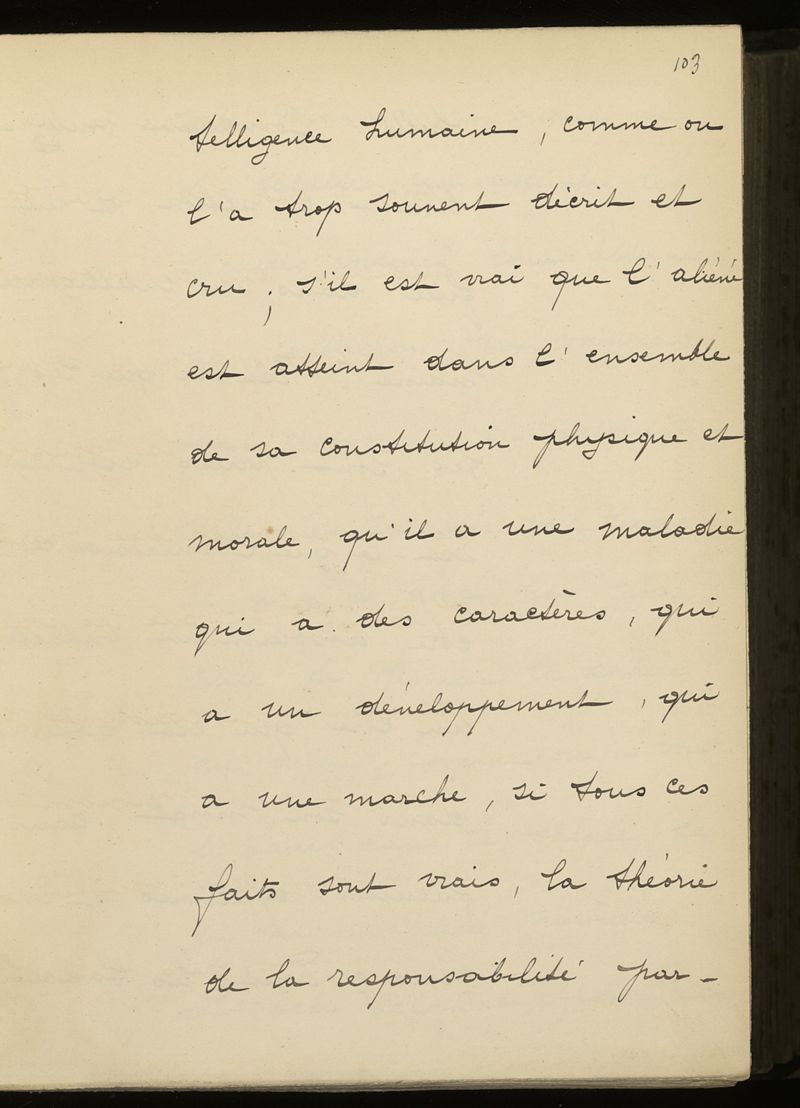 103
telligence humaine, comme on
l'a trop souvent décrit et
cru ; s'il est vrai que l'aliéné
est atteint dans l'ensemble
de sa constitution physique et
morale, qu'il a une maladie
qui a des caractères, qui
a un développement, qui
a une marche, si tous ces
faits sont vrais, la théorie
de la responsabilité par-